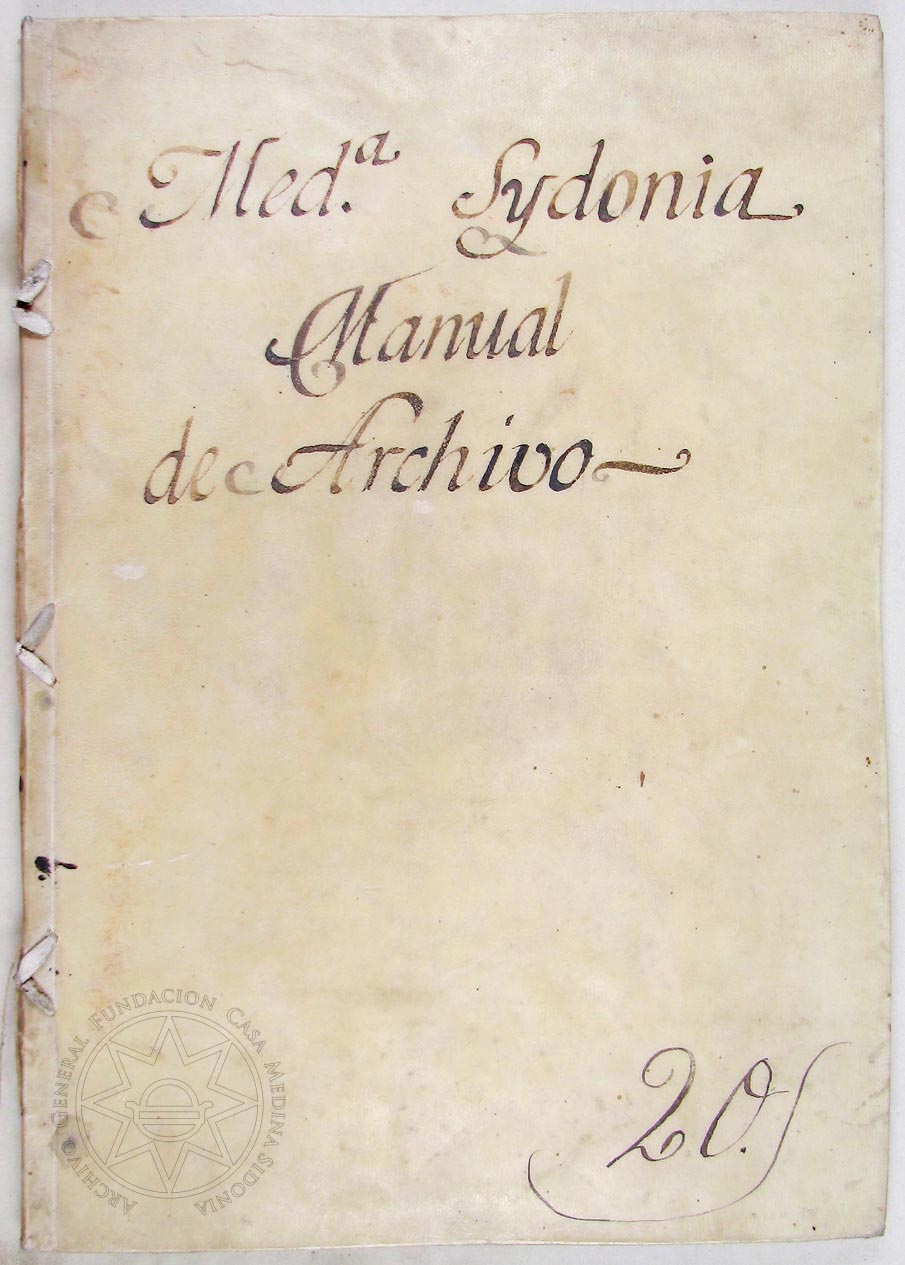 Med.ª Sydonia
Manual
de Archivo
20.
ARCHIVO GENERAL FUNDACION CASA MEDINA SIDONIA